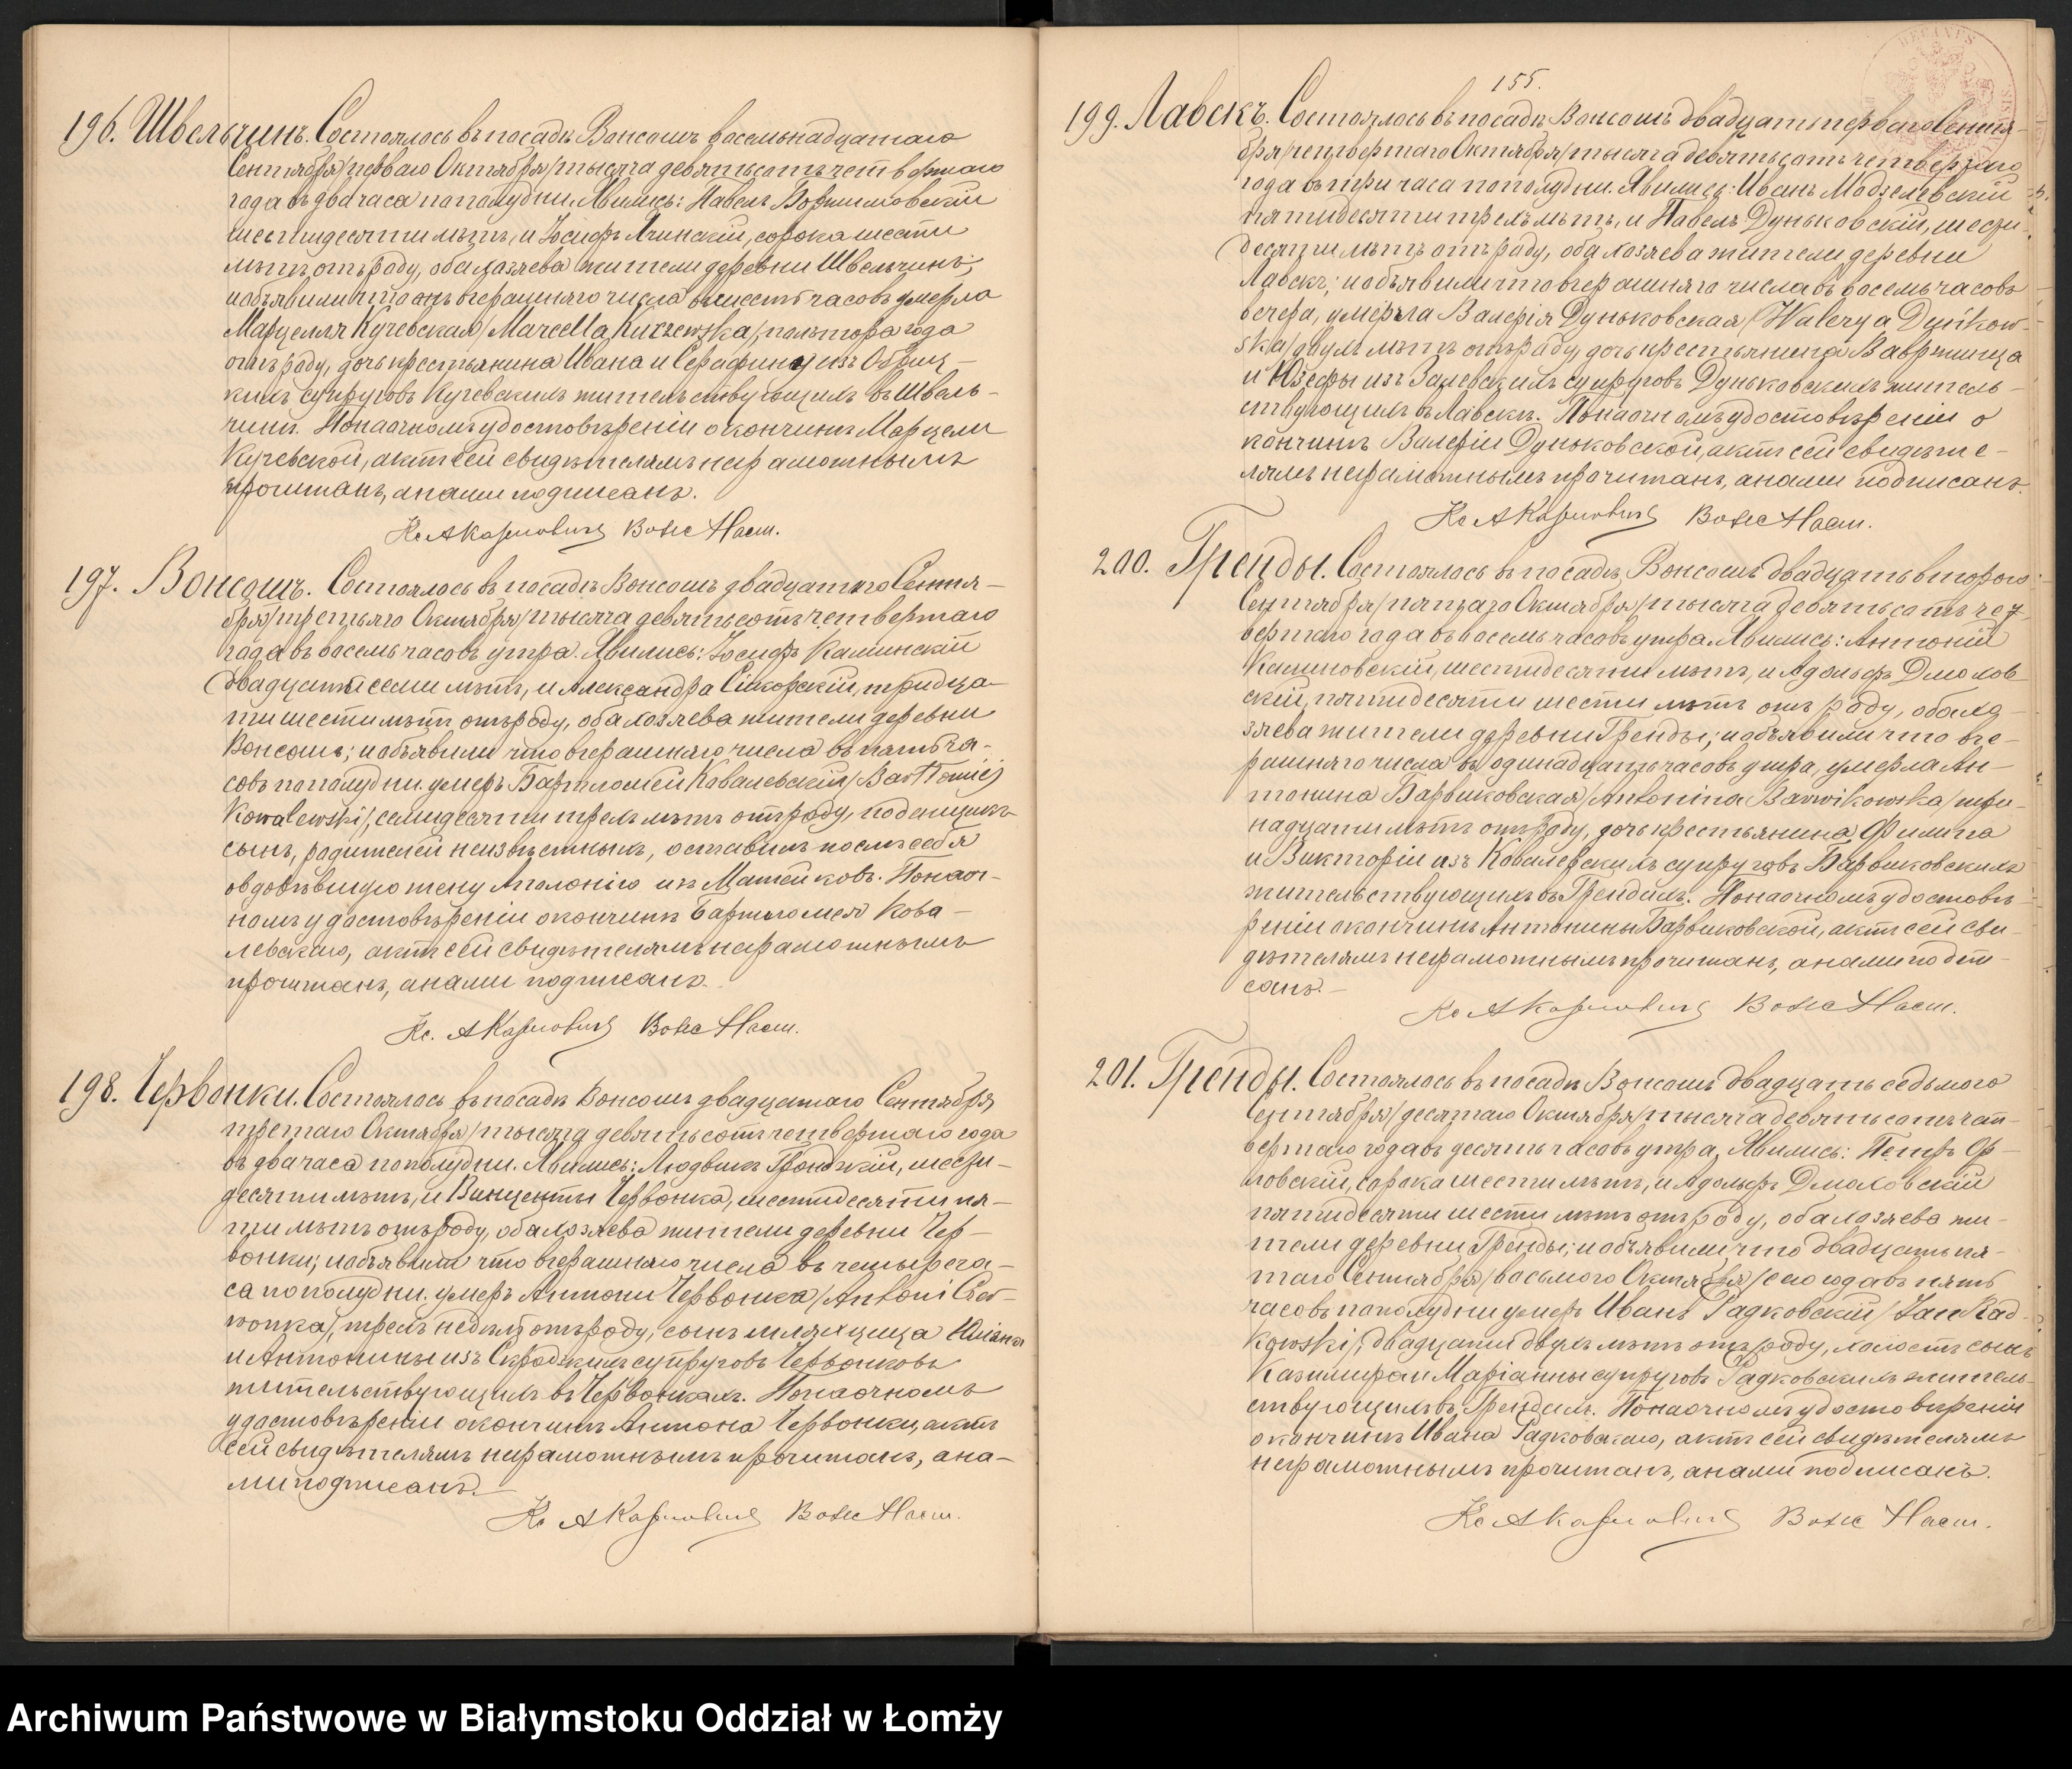 196. Швельчинъ. Состоялось въ посадѣ Вонсошъ восемьнадцатаго
Сентября/перваго Октября/тысяча девятьсотъ четвертаго
года въ два часа пополудни. Явились: Павелъ
шестидесяти лѣтъ, и Іосифъ сорока шести
лѣтъ отъ роду, оба хозяева жители деревни Швельчинъ;
и объявили что вчерашняго числа въ шесть часовъ умерла
Марцелля Кучевская/Marcella Kuczewska/, полтора года
отъ роду, дочь крестьянина Ивана и Серафины изъ
кихъ супруговъ Кучевскихъ жительствующихъ въ Швель-
чинѣ. По наочномъ удостовѣреніи о кончинѣ Марцели
Кучевской, актъ сей свидѣтелямъ неграмотнымъ
прочитанъ, а нами подписанъ.
Кс А Карповичъ Вонс Наст.
197. Вонсошъ. Состоялось въ посадѣ Вонсошъ двадцатаго Сентя-
бря/третьяго Октября/тысяча девятьсотъ четвертаго
года въ восемь часовъ утра. Явились: Іосифъ Каминскій
двадцати семи лѣтъ, и Александра Сикорскій, тридца-
ти шести лѣтъ отъ роду, оба хозяева жители деревни
Вонсошъ; и объявили что вчерашняго числа въ пять ча-
совъ пополудни умеръ Бартломей Ковалевскій/Bartłomiej
Kowalewski/, семидесяти трехъ лѣтъ отъ роду, поданщикъ
сынъ, родителей неизвѣстныхъ, оставивъ послѣ себя
овдовѣвшую жену Аполонію изъ Матейковъ. По наоч-
номъ удостовѣреніи о кончинѣ Бартломея Кова-
левскаго, актъ сей свидѣтелямъ неграмотнымъ
прочитанъ, а нами подписанъ.
Кс. А Карповичъ Вонс Наст.
198. Червонки. Состоялось въ посадѣ Вонсошъ двадцатаго Сентября
третаго Октября/тысяча девятьсотъ четвертаго года
въ два часа пополудни. Явились: Людвикъ Гронзкій, шести-
десяти лѣтъ, и Винценты Червонка, шестидесяти пя-
ти лѣтъ отъ роду, оба хозяева жители деревни Чер-
вонки; и объявили что вчерашняго числа въ четыре ча-
са пополудни умеръ Антони Червонка/Antoni Czer-
wonka/, трехъ недѣль отъ роду, сынъ шляхцица Юліана
и Антонины изъ Скродзкихъ супруговъ Червонковъ
жительствующихъ въ Червонкахъ. По наочномъ
удостовѣреніи о кончинѣ Антона Червонки, актъ
сей свидѣтелямъ неграмотнымъ прочитанъ, а на-
ми подписанъ.
Кс А Карповичъ Вонс Наст.
155.
199. Лавскъ. Состоялось въ посадѣ Вонсошъ двадцать перваго Сентя-
бря/четвертаго Октября/тысяча девятьсотъ четвертаго
года въ три часа пополудни. Явились: Иванъ Модзелевскій
пятидесяти трехъ лѣтъ, и Павелъ Дуньковскій, шести-
десяти лѣтъ отъ роду, оба хозяева жители деревни
Лавскъ; и объявили что вчерашняго числа въ восемь часовъ
вечера, умерла Валерія Дуньковская/Walerya Duńkow-
ska/двухъ лѣтъ отъ роду, дочь крестьянина Вавржинца
и Юзефы изъ Залевскихъ супруговъ Дуньковскихъ житель-
ствующихъ въ Лавскѣ. По наочномъ удостовѣреніи о
кончинѣ Валеріи Дуньковской, актъ сей свидѣте-
лямъ неграмотнымъ прочитанъ, а нами подписанъ.
Кс А Карповичъ Вонс Наст.
200. Гренды. Состоялось въ посадѣ Вонсошъ двадцать второго
Сентября/пятаго Октября/тысяча девятьсотъ чет-
вертаго года въ восемь часовъ утра. Явились: Антоній
Калиновскій, шестидесяти лѣтъ, и Адольфъ Дмохов-
скій, пятидесяти шести лѣтъ отъ роду, оба хо-
зяева жители деревни Гренды; и объявили что вче-
рашняго числа въ одинадцать часовъ утра, умерла Ан-
тонина Барвиковская/Antonina Barwikowska/три-
надцати лѣтъ отъ роду, дочь крестьянина Филипа
и Викторіи изъ Ковалевскихъ супруговъ Барвиковскихъ
жительствующихъ въ Грендахъ. По наочномъ удостовѣ-
реніи о кончинѣ Антонины Барвиковской, актъ сей сви-
дѣтелямъ неграмотнымъ прочитанъ, а нами подпи-
санъ.
Кс А Карповичъ Вонс Наст.
201. Гренды. Состоялось въ посадѣ Вонсошъ двадцать седьмого
Сентября/десятаго Октября/тысяча девятьсотъ чет-
вертаго года въ десять часовъ утра. Явились: Петръ Ор-
ловскій, сорока шести лѣтъ, и Адольфъ Дмоховскій
пятидесяти шести лѣтъ отъ роду, оба хозяева жи-
тели деревни Гренды; и объявили что двадцать пя-
таго Сентября/восьмого Октября/сего года въ пять
часовъ пополудни умеръ Иванъ Радковскій/Jan Rad-
kowski/, двадцати двухъ лѣтъ отъ роду, холостъ сынъ
Казимира и Маріанны супруговъ Радковскихъ житель-
ствующихъ въ Грендахъ. По наочномъ удостовѣреніи
о кончинѣ Ивана Радковскаго, актъ сей свидѣтелямъ
неграмотнымъ прочитанъ, а нами подписанъ.
Кс А Карповичъ Вонс Наст.
Archiwum Państwowe w Białymstoku Oddział w Łomży